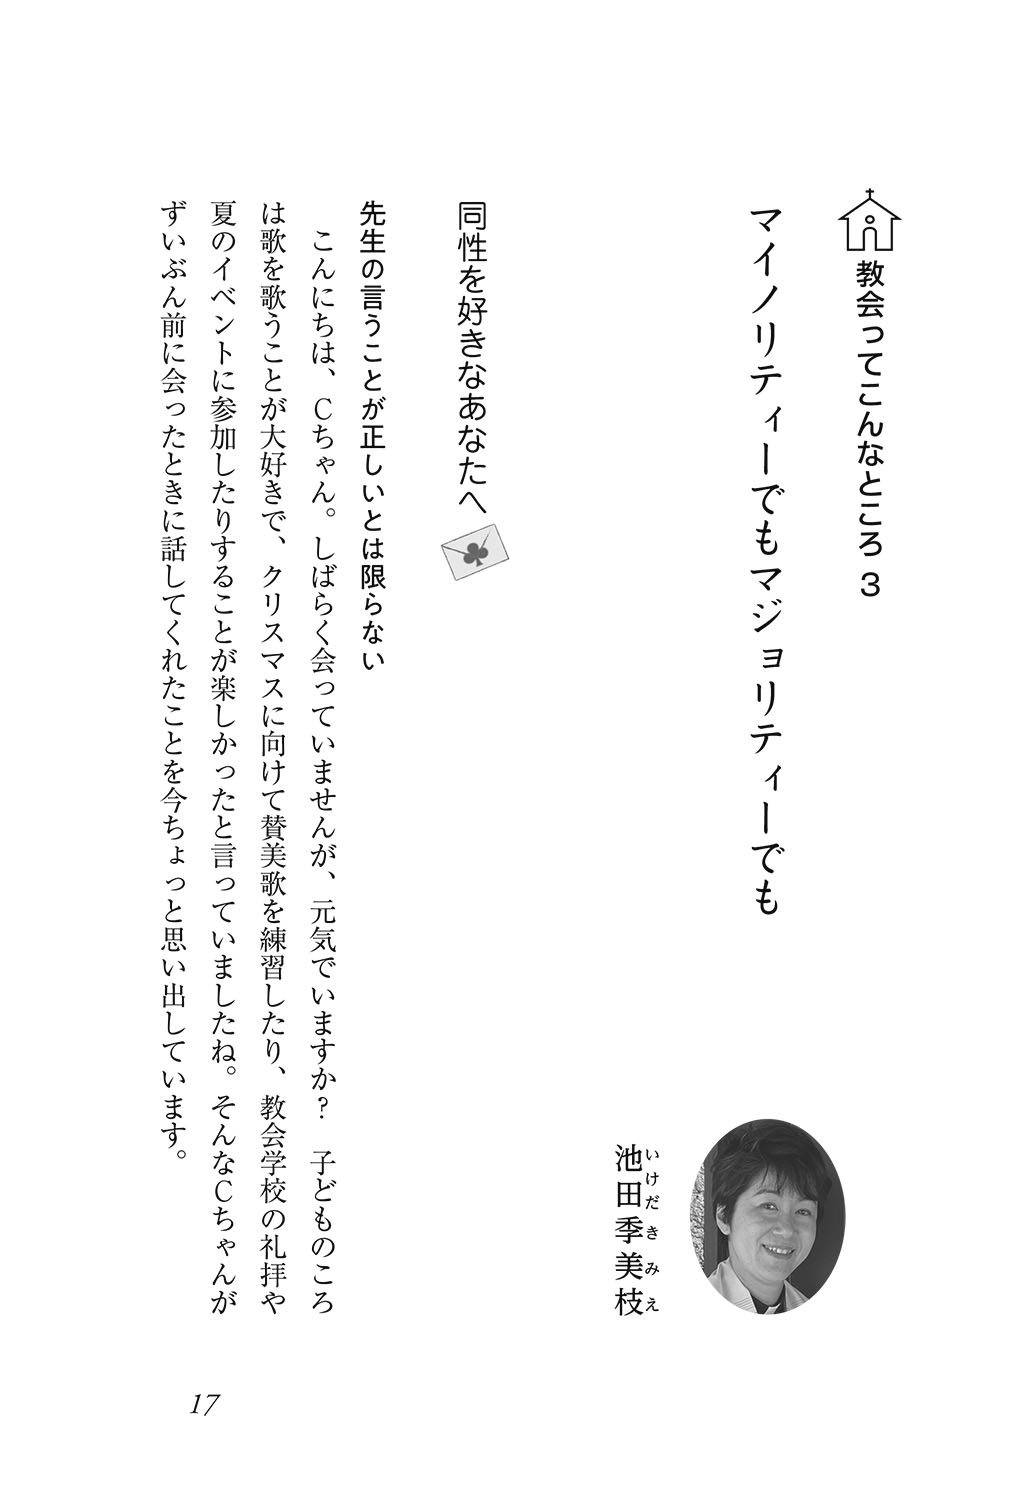 教会ってこんなところ 3
マイノリティーでもマジョリティーでも
池田季美枝
いけだきみえ
同性を好きなあなたへ
先生の言うことが正しいとは限らない
こんにちは、Cちゃん。しばらく会っていませんが、元気でいますか？　子どものころ
は歌を歌うことが大好きで、クリスマスに向けて賛美歌を練習したり、教会学校の礼拝や
夏のイベントに参加したりすることが楽しかったと言っていましたね。そんなCちゃんが
ずいぶん前に会ったときに話してくれたことを今ちょっと思い出しています。
17